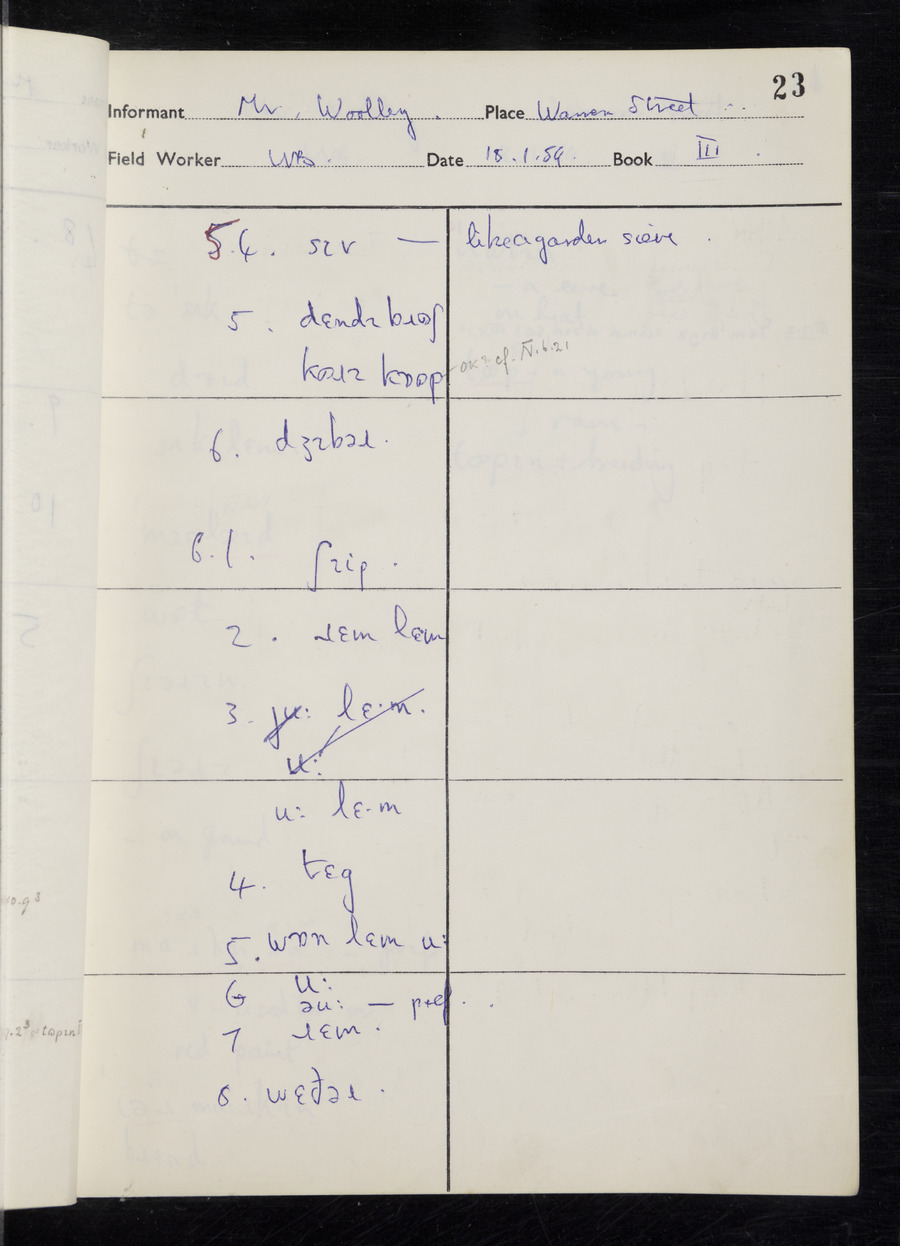 23
Informant Mr. Woolley. Place Warren Street
Field Worker WB. Date 18.1.59. Book III
5.4. sɪv — like a garden sieve.
5. dɛndɹ
kɒɹɪ kɹɒp - OK? cf. IV.6.21
6. dʒɪbəɹ.
6.1. ʃɪip.
2. ɹɛm lɛm
3. ju: lɛ·m.
u:
u: lɛ·m
4. tɛg
5. wɒn lɛm u:
6 u:
əu: — pref.
7 ɹɛm.
8. wɛðəɹ.